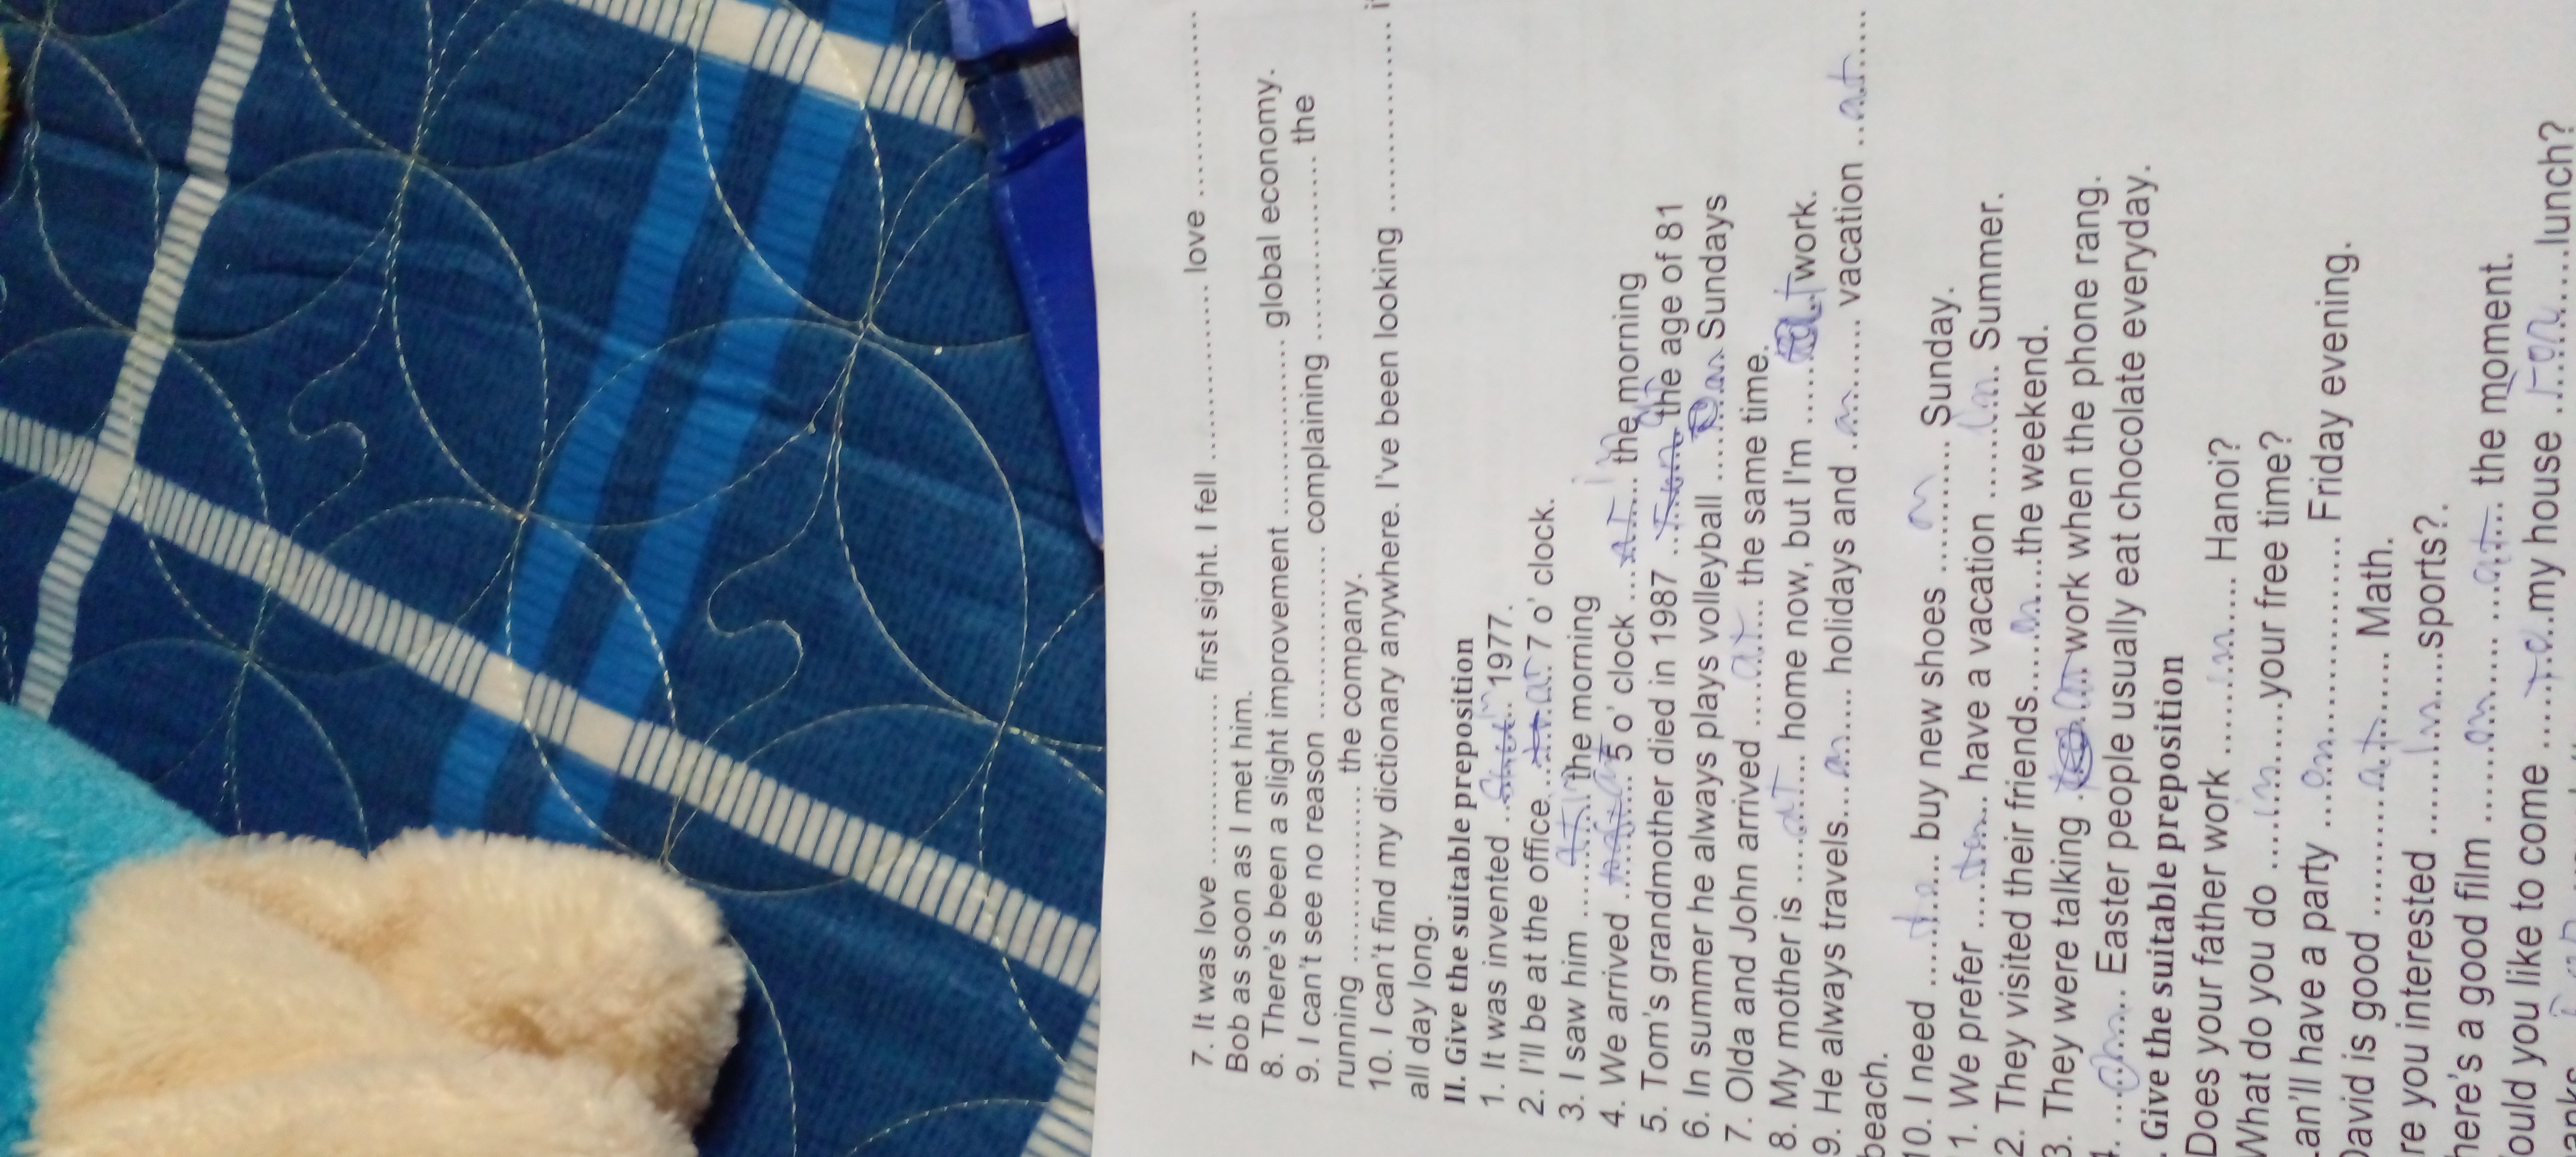 7. It was love .................. first sight. I fell .................. love ..................
Bob as soon as I met him.
8. There's been a slight improvement .................. global economy.
9. I can't see no reason .................. complaining .................. the
running .................. the company.
10. I can't find my dictionary anywhere. I've been looking ..................
all day long.
II. Give the suitable preposition
1. It was invented ......... in 1977.
2. I'll be at the office......... at 7 o' clock.
3. I saw him ......... in the morning
4. We arrived ......... at 5 o' clock ......... in the morning
5. Tom's grandmother died in 1987 ......... at the age of 81
6. In summer he always plays volleyball ......... on Sundays
7. Olda and John arrived ......... at ... the same time.
8. My mother is ..... at ..... home now, but I'm ......... at work.
9. He always travels..... on ..... holidays and ..... on ..... vacation ... at .....
beach.
10. I need ..... to ..... buy new shoes ..... on ..... Sunday.
1. We prefer ..... to ..... have a vacation ..... in ... Summer.
2. They visited their friends..... on .....the weekend.
3. They were talking ..... work when the phone rang.
... on ..... Easter people usually eat chocolate everyday.
. Give the suitable preposition
Does your father work ..... in ..... Hanoi?
What do you do ..... in .....your free time?
an'll have a party ..... on ............ Friday evening.
David is good ......... at ......... Math.
re you interested ......... in .....sports?.
here's a good film ......... on ......... at ..... the moment.
ould you like to come ..... to ...my house ... for .....lunch?